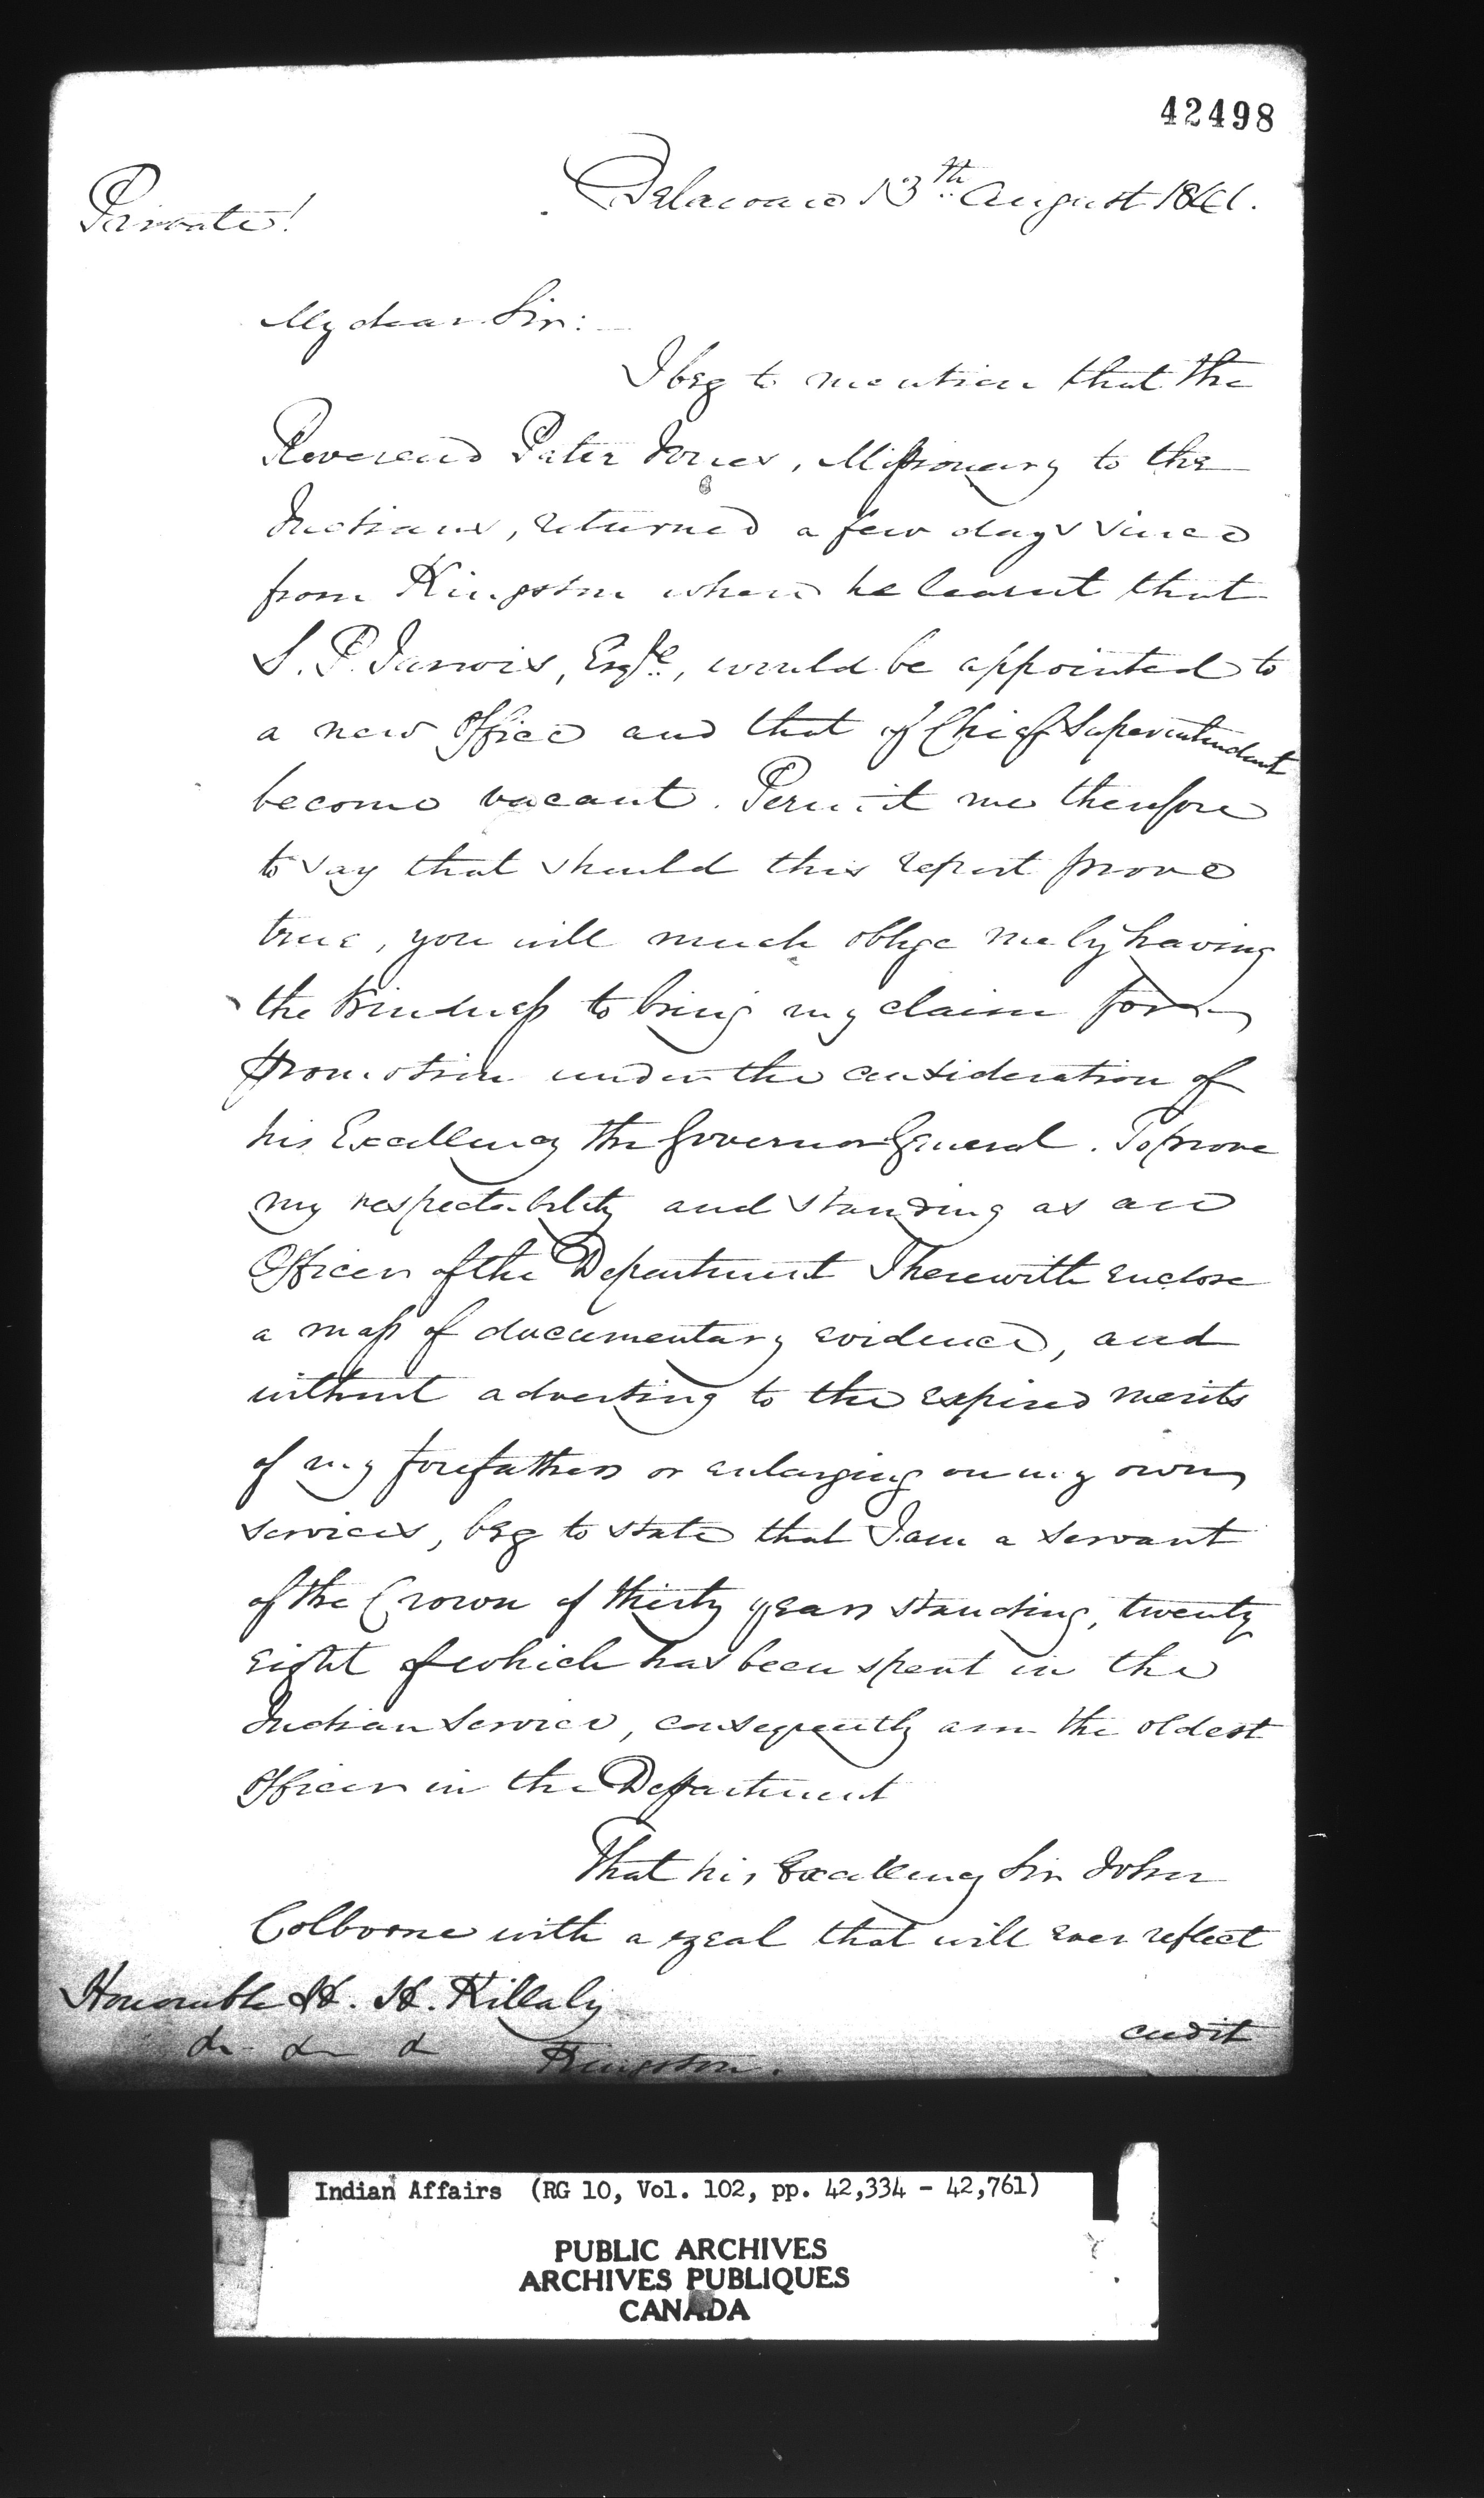 42498
Private!
Delaware 13th August 1841.
My dear Sir:
I beg to mention that the
Reverend Peter Jones, Missionary to the
Indians, returned a few days since
from Kingston where he learnt that
S. P. Jarvis, Esqre., would be appointed to
a new Office and that of Chief Superintendent
become vacant. Permit me therefore
to say that should this report prove
true, you will much oblige me by having
the kindness to bring my claim for
promotion under the consideration of
his Excellency the Governor General. To prove
my respectability and standing as an
Officer of the Department I herewith enclose
a mass of documentary evidence, and
without adverting to the expired merits
of my forefathers or enlarging on my own
services, beg to state that I am a servant
of the Crown of thirty years standing, twenty
eight of which has been spent in the
Indian Service, consequently am the oldest
Officer in the Department
That his Excellency Sir John
Colborne with a zeal that will ever reflect
Honorable H. H. Killaly
credit
&c &c &c Kingston.
Indian Affairs (RG 10, Vol. 102, pp. 42,334 - 42,761)
PUBLIC ARCHIVES
ARCHIVES PUBLIQUES
CANADA